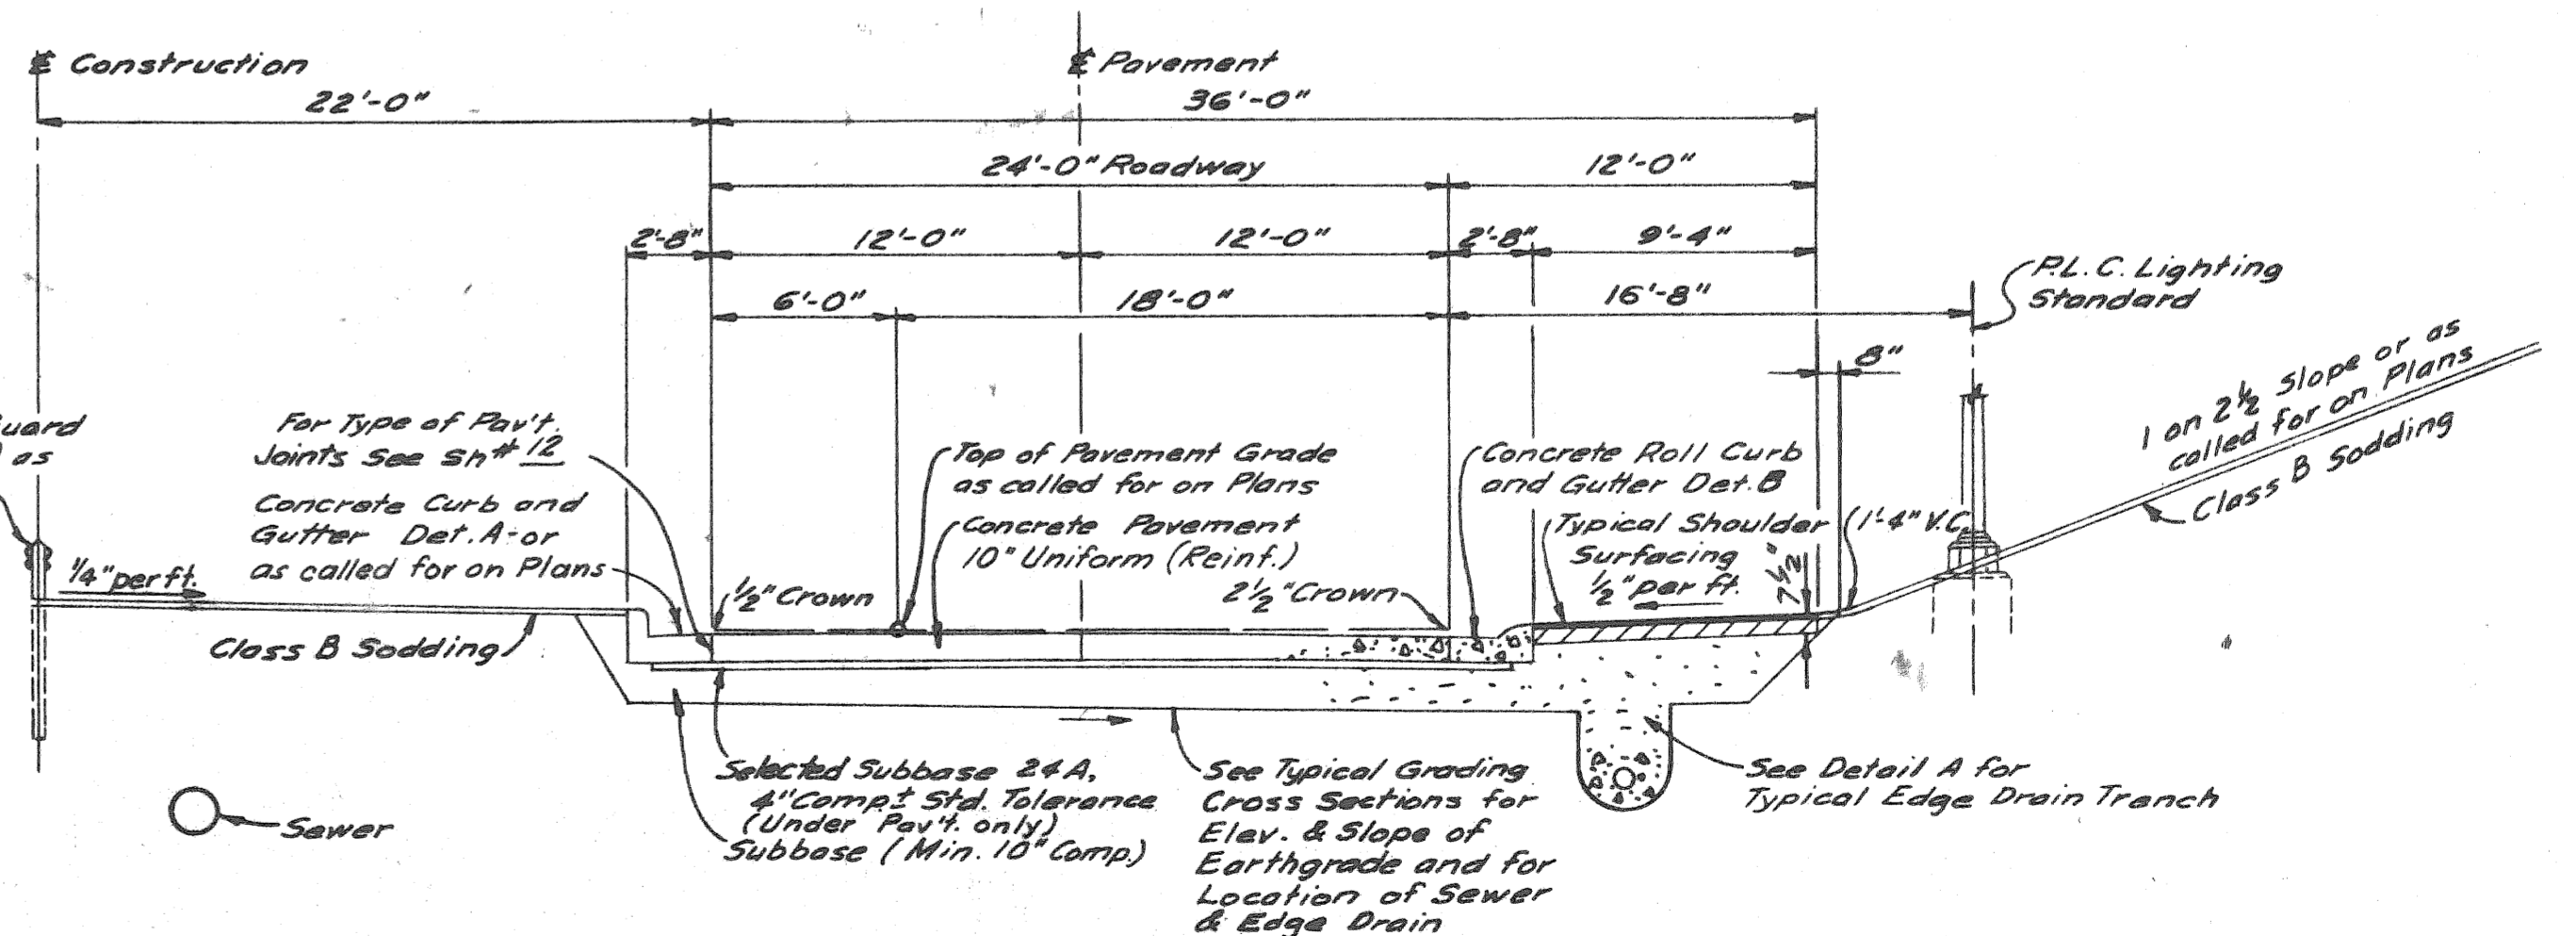 ℄ Construction
℄ Pavement
22'-0"
36'-0"
24'-0" Roadway
12'-0"
2'-8"
12'-0"
12'-0"
2'-8"
9'-4"
6'-0"
18'-0"
16'-8"
P.L.C. Lighting
Standard
8"
1 on 2½ Slope or as
called for on Plans
Class B Sodding
uard
as
For Type of Pav't.
Joints See Sh# 12
Concrete Curb and
Gutter Det. A-or
as called for on Plans
Top of Pavement Grade
as called for on Plans
Concrete Pavement
10" Uniform (Reinf.)
Concrete Roll Curb
and Gutter Det. B
Typical Shoulder
Surfacing
½" per ft.
7½"
1'-4" V.C.
¼" per ft.
½" Crown
2½" Crown
Class B Sodding
Sewer
Selected Subbase 24A,
4" Comp.± Std. Tolerance
(Under Pav't. only)
Subbase (Min. 10" Comp.)
See Typical Grading
Cross Sections for
Elev. & Slope of
Earthgrade and for
Location of Sewer
& Edge Drain
See Detail A for
Typical Edge Drain Trench